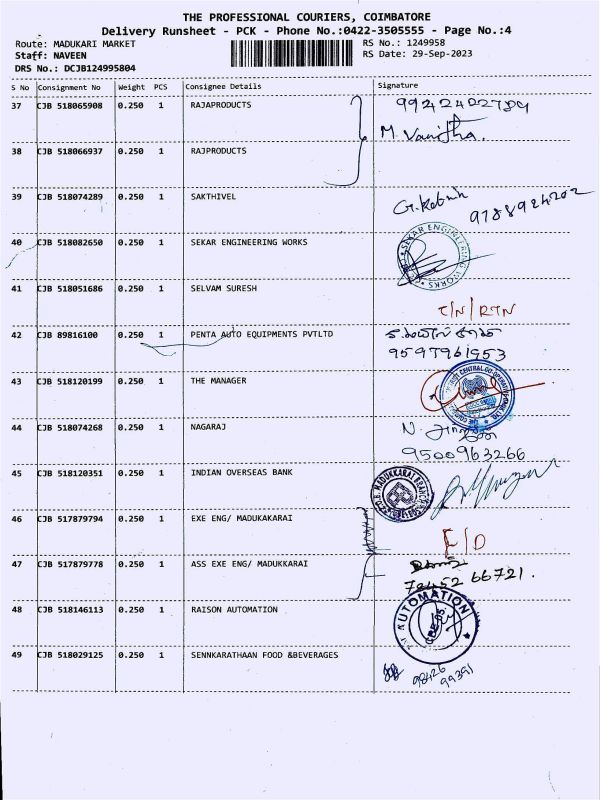 THE PROFESSIONAL COURIERS, COIMBATORE
Delivery Runsheet - PCK - Phone No.:0422-3505555 - Page No.:4
Route: MADUKARI MARKET
RS No.: 1249958
Staff: NAVEEN
RS Date: 29-Sep-2023
DRS No.: DCJB124995804
S No Consignment No Weight PCS Consignee Details Signature
37 CJB 518065908 0.250 1 RAJAPRODUCTS
M. Vanitha.
38 CJB 518066937 0.250 1 RAJPRODUCTS
39 CJB 518074289 0.250 1 SAKTHIVEL 9788924202
40 CJB 518082650 0.250 1 SEKAR ENGINEERING WORKS SEKAR ENGINEERING WORKS
41 CJB 518051686 0.250 1 SELVAM SURESH
/N/RTN
42 CJB 89816100 0.250 1 PENTA AUTO EQUIPMENTS PVTLTD
9597961953
43 CJB 518120199 0.250 1 THE MANAGER
44 CJB 518074268 0.250 1 NAGARAJ N.
9500963266
45 CJB 518120351 0.250 1 INDIAN OVERSEAS BANK MADUKKARAI BRANCH
46 CJB 517879794 0.250 1 EXE ENG/ MADUKAKARAI
47 CJB 517879778 0.250 1 ASS EXE ENG/ MADUKKARAI
66721.
48 CJB 518146113 0.250 1 RAISON AUTOMATION AUTOMATION
49 CJB 518029125 0.250 1 SENNKARATHAAN FOOD &BEVERAGES
98426
99391